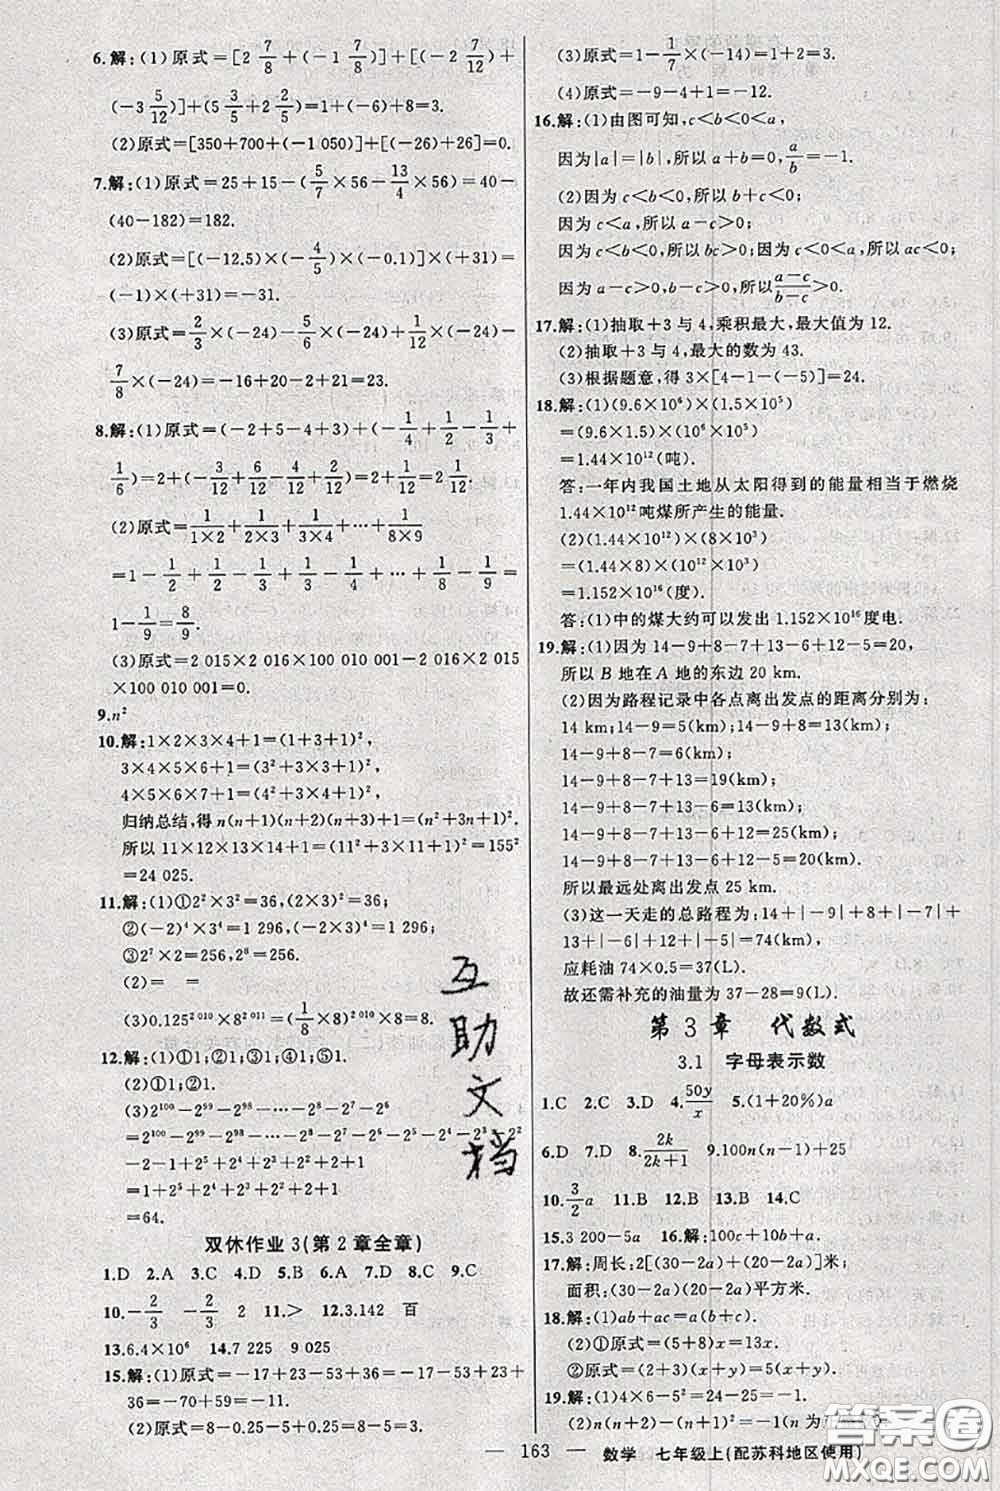 6.解:(1)原式=[2 7/8+(-1 7/8)]+[(-2 7/12)+
(-3 5/12)]+(5 3/5+2 2/5)=1+(-6)+8=3.
(2)原式=[350+700+(-1 050)]+[(-26)+26]=0.
7.解:(1)原式=25+15-(5/7×56-13/4×56)=40-
(40-182)=182.
(2)原式=[(-12.5)×(-4/5)×(-0.1)]×(+31)=
(-1)×(+31)=-31.
(3)原式=2/3×(-24)-5/6×(-24)+1/12×(-24)-
7/8×(-24)=-16+20-2+21=23.
8.解:(1)原式=(-2+5-4+3)+(-1/4+1/2-1/3+
1/6)=2+(-3/12+6/12-4/12+2/12)=2+1/12=2 1/12.
(2)原式=1/1×2+1/2×3+1/3×4+…+1/8×9
=1-1/2+1/2-1/3+1/3-1/4+…+1/8-1/9=
1-1/9=8/9.
(3)原式=2 015×2 016×100 010 001-2 016×2 015
×100 010 001=0.
9.n²
10.解:1×2×3×4+1=(1+3+1)²,
3×4×5×6+1=(3²+3×3+1)²,
4×5×6×7+1=(4²+3×4+1)²,
归纳总结,得 n(n+1)(n+2)(n+3)+1=(n²+3n+1)².
所以 11×12×13×14+1=(11²+3×11+1)²=155²
=24 025.
11.解:(1)①2²×3²=36,(2×3)²=36;
②(-2)⁴×3⁴=1 296,(-2×3)⁴=1 296;
③2⁷×2=256,2⁸=256.
(2)= =
(3)0.125²⁰¹⁰×8²⁰¹¹=(1/8×8)²⁰¹⁰×8=8.
12.解:(1)①1;②1;③1;④1;⑤1;
(2)①1;②1.
(3)2¹⁰⁰-2⁹⁹-2⁹⁸-…-2⁸-2⁷-2⁶
=2¹⁰⁰-2⁹⁹-2⁹⁸-…-2⁸-2⁷-2⁶-2⁵-2⁴-2³-2²
-2-1+2⁵+2⁴+2³+2²+2+1
=1+2⁵+2⁴+2³+2²+2+1
=64.
双休作业 3(第 2 章全章)
1.D 2.A 3.C 4.D 5.B 6.A 7.D 8.C 9.C
10.-2/3 -2/3 2 11.> 12.3.142 百
13.6.4×10⁶ 14.7 225 9 025
15.解:(1)原式=-17-23-53+36=-17-53-23+
36=-70+59=-11.
(2)原式=8-0.25-5+0.25=8-5=3.
互助文档
(3)原式=1-1/7×(-14)=1+2=3.
(4)原式=-9-4+1=-12.
16.解:(1)由图可知,c<b<0<a,
因为|a|=|b|,所以 a+b=0,a/b=-1.
(2)因为 c<b<0,所以 b+c<0;
因为 c<a,所以 a-c>0;
因为 c<b<0,所以 bc>0;因为 c<0<a,所以 ac<0;
因为 a-c>0,b-c>0,所以a-c/b-c>0.
17.解:(1)抽取+3 与 4,乘积最大,最大值为 12.
(2)抽取+3 与 4,最大的数为 43.
(3)根据题意,得 3×[4-1-(-5)]=24.
18.解:(1)(9.6×10⁶)×(1.5×10⁵)
=(9.6×1.5)×(10⁶×10⁵)
=1.44×10¹²(吨).
答:一年内我国土地从太阳得到的能量相当于燃烧
1.44×10¹²吨煤所产生的能量.
(2)(1.44×10¹²)×(8×10³)
=(1.44×8)×(10¹²×10³)
=1.152×10¹⁶(度).
答:(1)中的煤大约可以发出 1.152×10¹⁶度电.
19.解:(1)因为 14-9+8-7+13-6+12-5=20,
所以 B 地在 A 地的东边 20 km.
(2)因为路程记录中各点离出发点的距离分别为:
14 km;14-9=5(km);14-9+8=13(km);
14-9+8-7=6(km);
14-9+8-7+13=19(km);
14-9+8-7+13-6=13(km);
14-9+8-7+13-6+12=25(km);
14-9+8-7+13-6+12-5=20(km),
所以最远处离出发点 25 km.
(3)这一天走的总路程为:14+|-9|+8+|-7|+
13+|-6|+12+|-5|=74(km),
应耗油 74×0.5=37(L).
故还需补充的油量为 37-28=9(L).
第 3 章 代数式
3.1 字母表示数
1.C 2.C 3.D 4.50y/x 5.(1+20%)a
6.D 7.D 8.2k/2k+1 9.100n(n-1)+25
10.3/2a 11.B 12.B 13.B 14.C
15.3 200-5a 16.解:(1)5a.(2)πa²/4.
17.解:周长:2[(30-2a)+(20-2a)]米;
面积:(30-2a)(20-2a)平方米.
18.解:(1)ab+ac=a(b+c).
(2)①原式=(5+8)x=13x.
②原式=(2+3)(x+y)=5(x+y).
19.解:(1)4×6-5²=24-25=-1.
(2)n(n+2)-(n+1)²=-1(n
答案圈
MXQE.COM
— 163 — 数学 七年级上(配苏科地区使用)